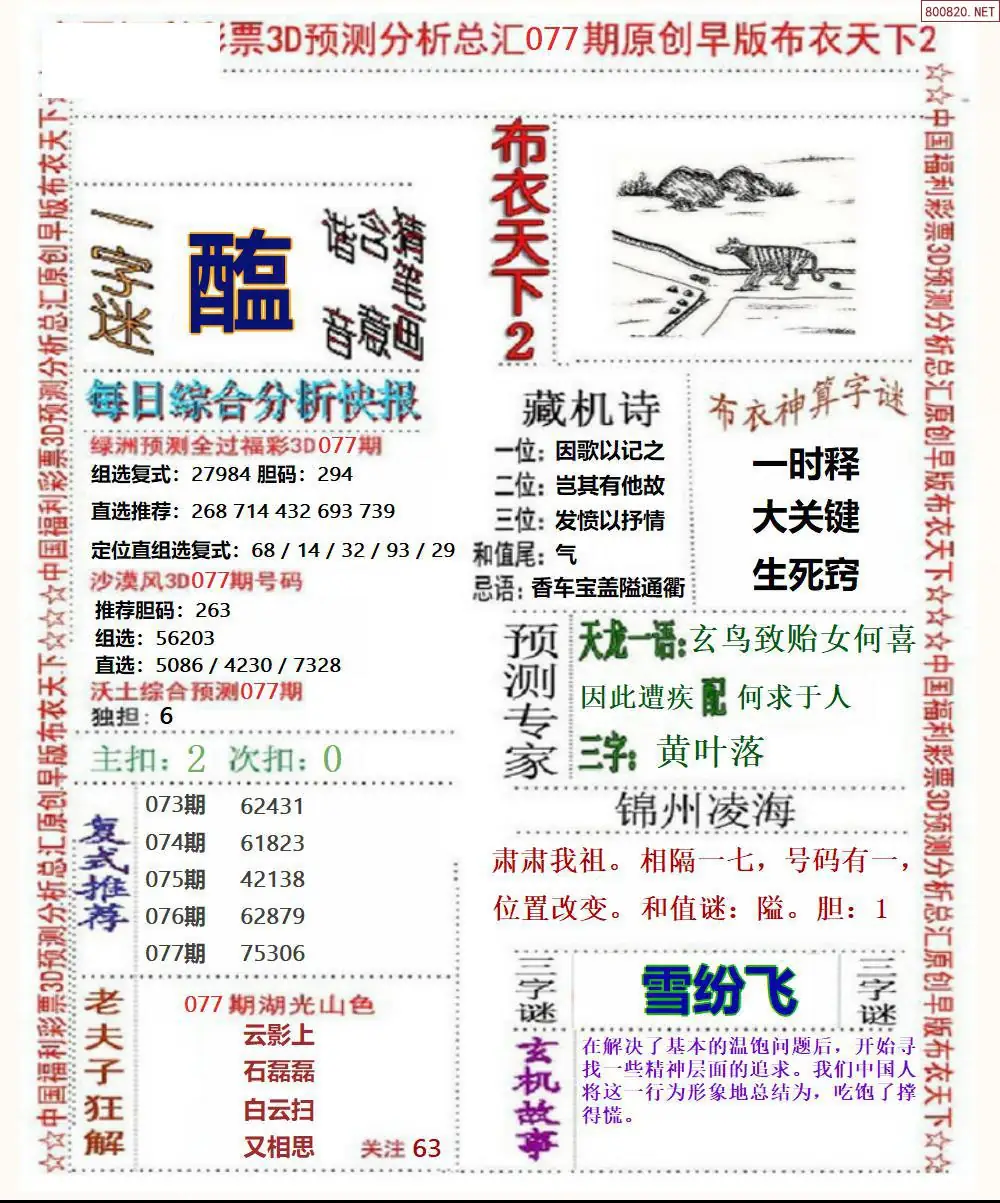 800820.NET
彩票3D预测分析总汇077期原创早版布衣天下2
一字迷
醖
猜笔画
含意
谐音
布衣天下2
每日综合分析快报
绿洲预测全过福彩3D077期
组选复式：27984 胆码：294
直选推荐：268 714 432 693 739
定位直组选复式：68 / 14 / 32 / 93 / 29
沙漠风3D077期号码
推荐胆码：263
组选：56203
直选：5086 / 4230 / 7328
沃土综合预测077期
独担：6
主扣：2 次扣：0
复式推荐
073期 62431
074期 61823
075期 42138
076期 62879
077期 75306
老夫子狂解
077期湖光山色
云影上
石磊磊
白云扫
又相思
关注 63
藏机诗
一位：因歌以记之
二位：岂其有他故
三位：发愤以抒情
和值尾：气
忌语：香车宝盖隘通衢
布衣神算字谜
一时释
大关键
生死窍
预测专家
天龙一语：玄鸟致贻女何喜
因此遭疾 配 何求于人
三字：黄叶落
锦州凌海
肃肃我祖。相隔一七，号码有一，
位置改变。和值谜：隘。胆：1
三字谜
雪纷飞
三字谜
玄机故事
在解决了基本的温饱问题后，开始寻
找一些精神层面的追求。我们中国人
将这一行为形象地总结为，吃饱了撑
得慌。
☆☆中国福利彩票3D预测分析总汇原创早版布衣天下☆☆☆中国福利彩票3D预测分析总汇原创早版布衣天下☆
☆☆中国福利彩票3D预测分析总汇原创早版布衣天下☆☆☆中国福利彩票3D预测分析总汇原创早版布衣天下☆☆